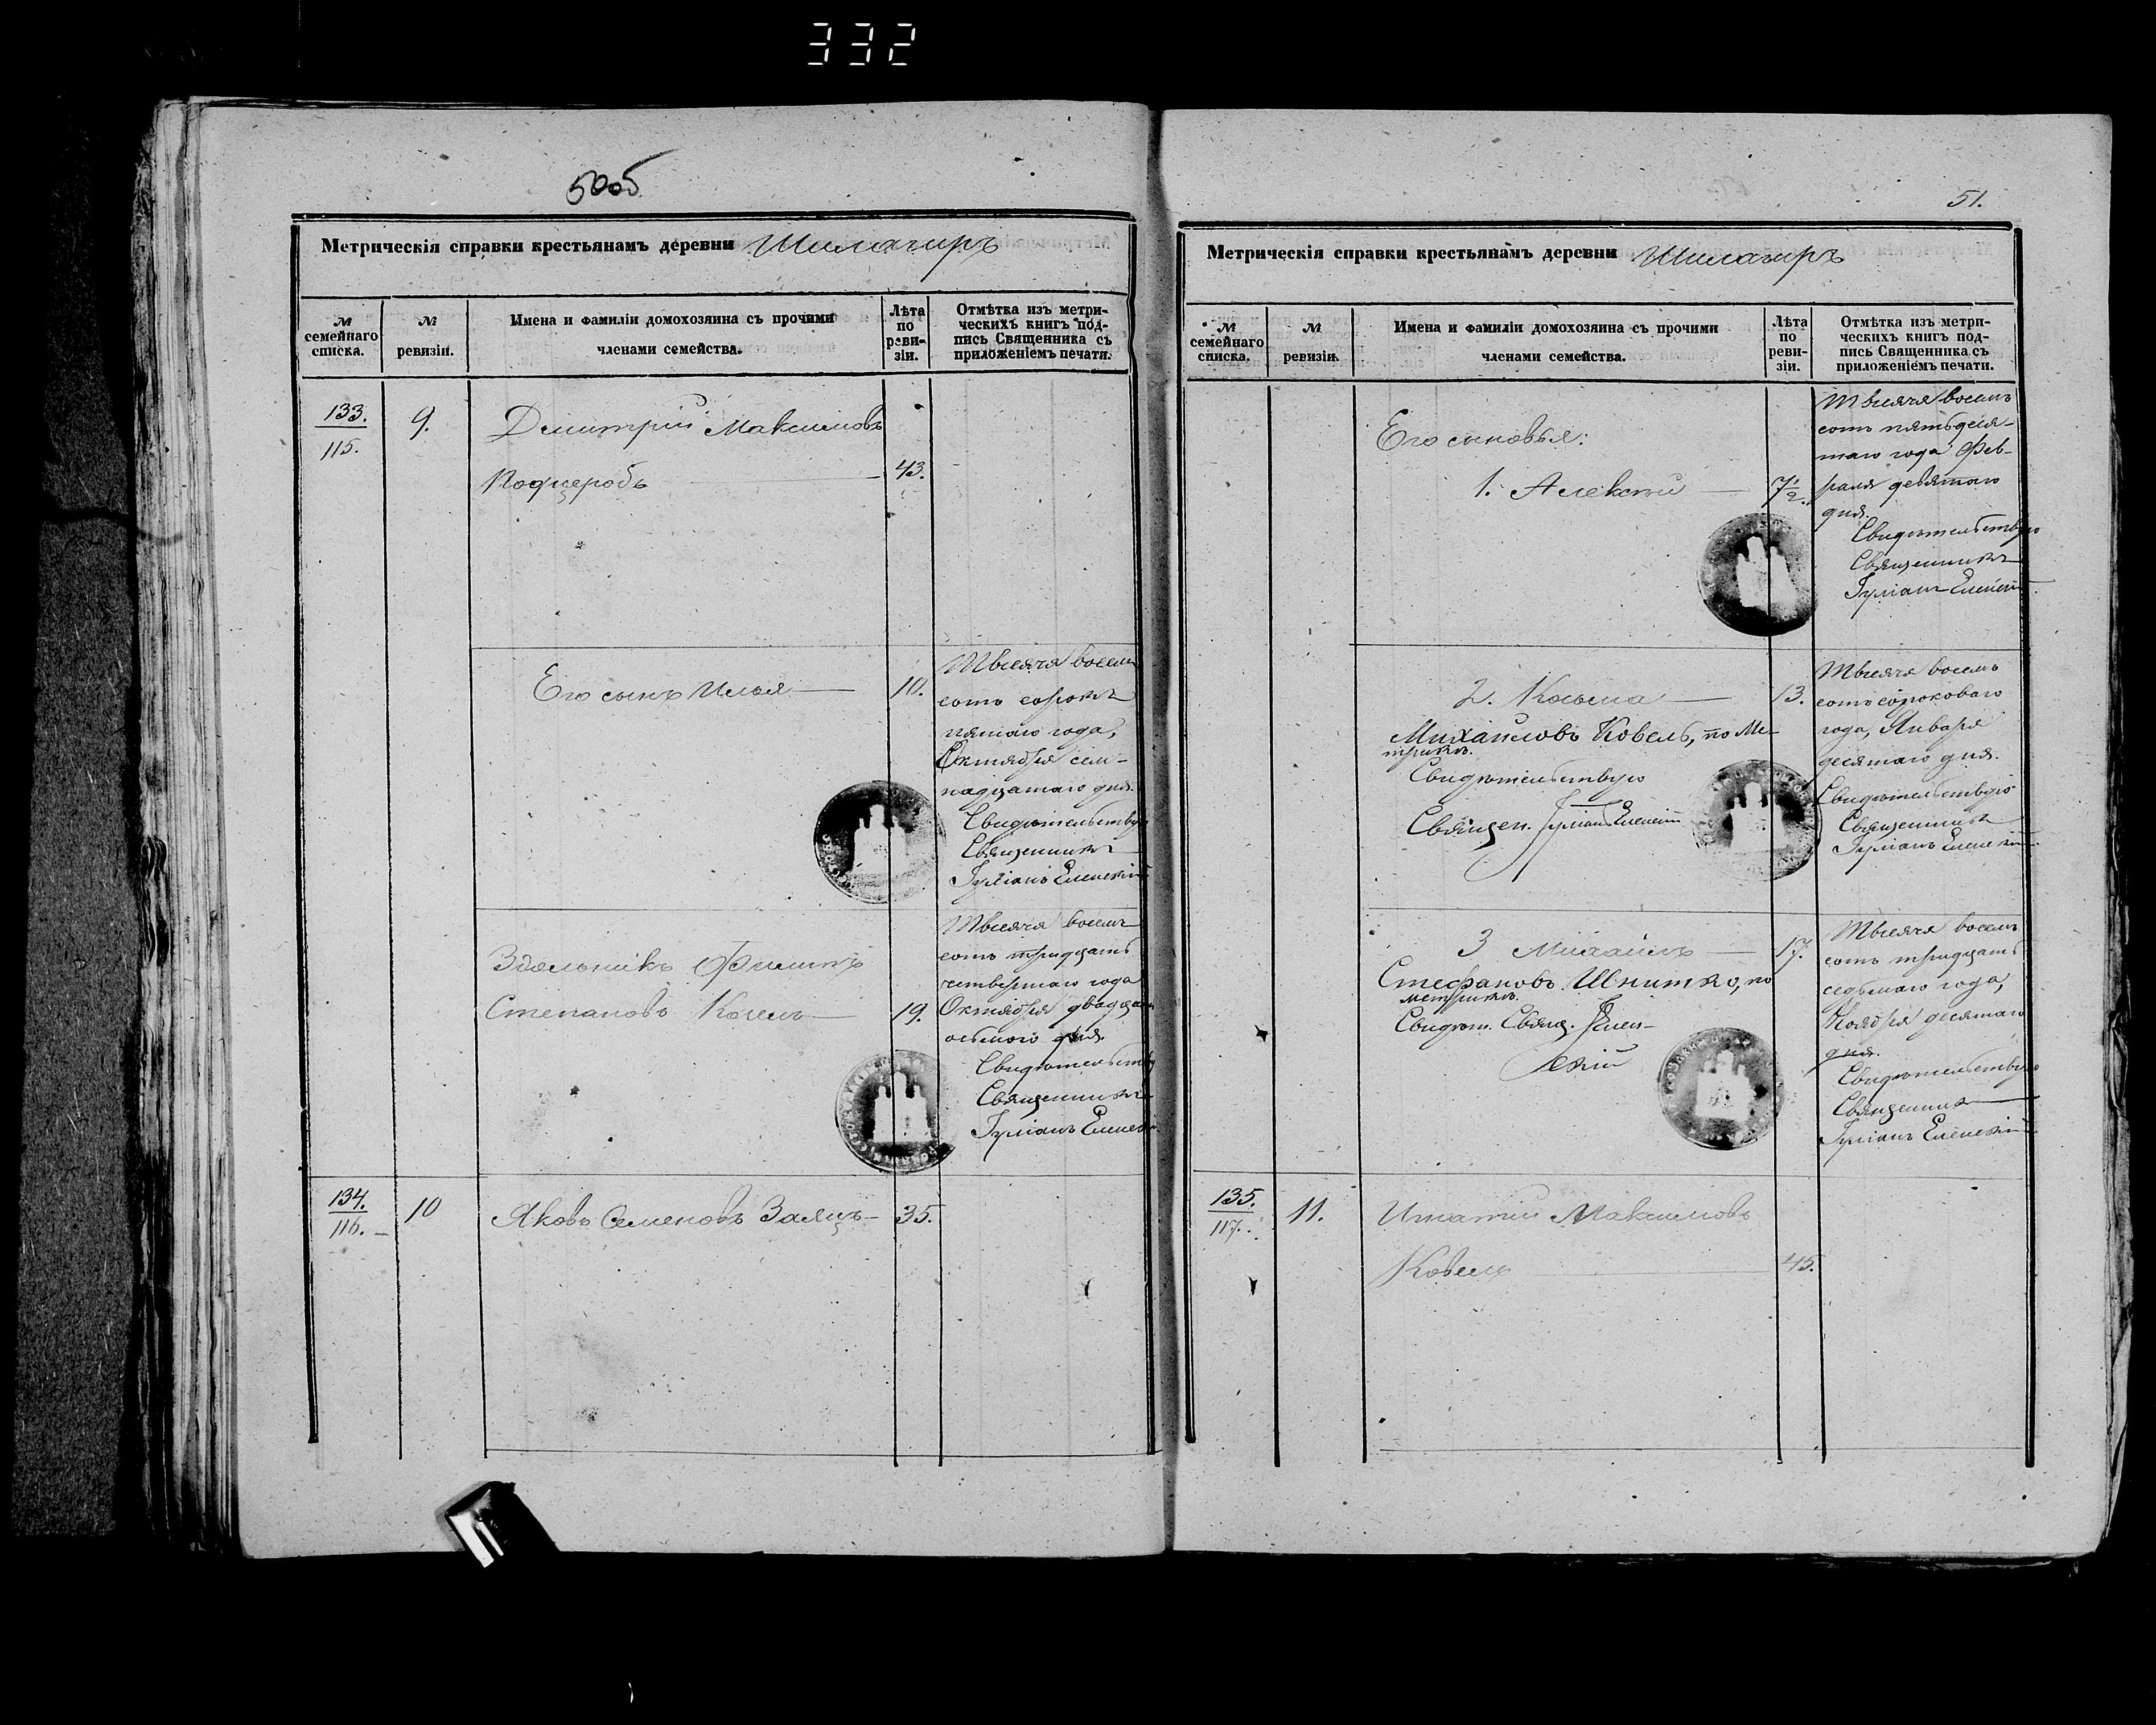 332
50об
Метрическія справки крестьянамъ деревни Шилагиръ
№ семейнаго списка.
№ ревизіи.
Имена и фамиліи домохозяина съ прочими членами семейства.
Лѣта по ревизіи.
Отмѣтка изъ метрическихъ книгъ подпись Священника съ приложеніемъ печати.
133.
115.
9.
Димитрій Максимовъ
Подцеробъ
43.
Его сынъ Илья
10.
Тысяча восемь
сотъ сорокъ
пятаго года,
Октября сем-
надцатаго дня.
Свидѣтельствую
Священникъ
Іуліанъ Еленскій
Здольникъ Филипъ
Степановъ
19.
Тысяча восемь
сотъ тридцать
четвертаго года
Октября двадцать
осьмого дня.
Свидѣтельству
Священникъ
Іуліанъ Еленскій
134.
116.
10
Яковъ Семеновъ Заяцъ
35.
51.
Метрическія справки крестьянамъ деревни Шилагиръ
№ семейнаго списка.
№ ревизіи.
Имена и фамиліи домохозяина съ прочими членами семейства.
Лѣта по ревизіи.
Отмѣтка изъ метрическихъ книгъ подпись Священника съ приложеніемъ печати.
Его сыновья:
1. Алексѣй
1/2.
Тысяча восемь
сотъ пятьдеся-
таго года, Фев-
раля девятаго
дня.
Свидѣтельствую
Священникъ
Іуліанъ Еленскій
2. Косьма
13.
Михайловъ Ковель, по Ме-
трикѣ.
Свидѣтельствую
Священ. Іуліанъ Еленскій
Тысяча восемь
сотъ сороковаго
года, Января
десятаго дня.
Свидѣтельствую
Священникъ
Іуліанъ Еленскій
3 Михаилъ
17.
Стефановъ Шнитко, по
метрикѣ.
Свидѣт. Свящ. Елен-
скій
Тысяча восемь
сотъ тридцать
седьмаго года,
Ноября десятаго
дня.
Свидѣтельствую
Священникъ
Іуліанъ Еленскій
135.
117.
11.
Игнатій Максимовъ
Ковель
45.